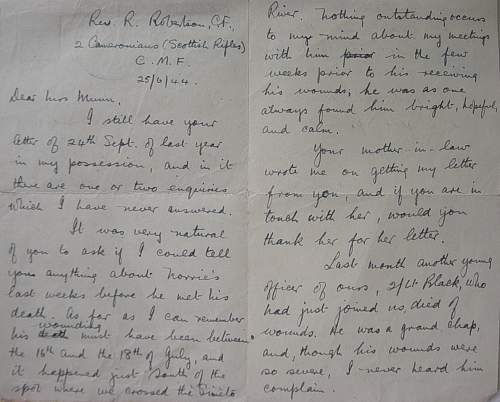 Rev. R. Robertson, C.F.
2 Cameronians (Scottish Rifles)
C.M.F.
25/6/44.
Dear Mrs Munn.
I still have your
letter of 24th Sept. of last year
in my possession, and in it
there are one or two enquiries
which I have never answered.
It was very natural
of you to ask if I could tell
you anything about Norrie's
last weeks before he met his
death. As far as I can remember
wounding
his death must have been between
the 16th and the 18th of July, and
it happened just South of the
spot where we crossed the Simeto
River. Nothing outstanding occurs
to my mind about my meetings
with him prior in the few
weeks prior to his receiving
his wounds; he was as one
always found him bright, hopeful,
and calm.
Your mother-in-law
wrote me on getting my letter
from you, and if you are in
touch with her, would you
thank her for her letter.
Last month another young
officer of ours, 2/Lt Black, who
had just joined us, died of
wounds. He was a grand chap,
and, though his wounds were
so severe, I never heard him
complain.